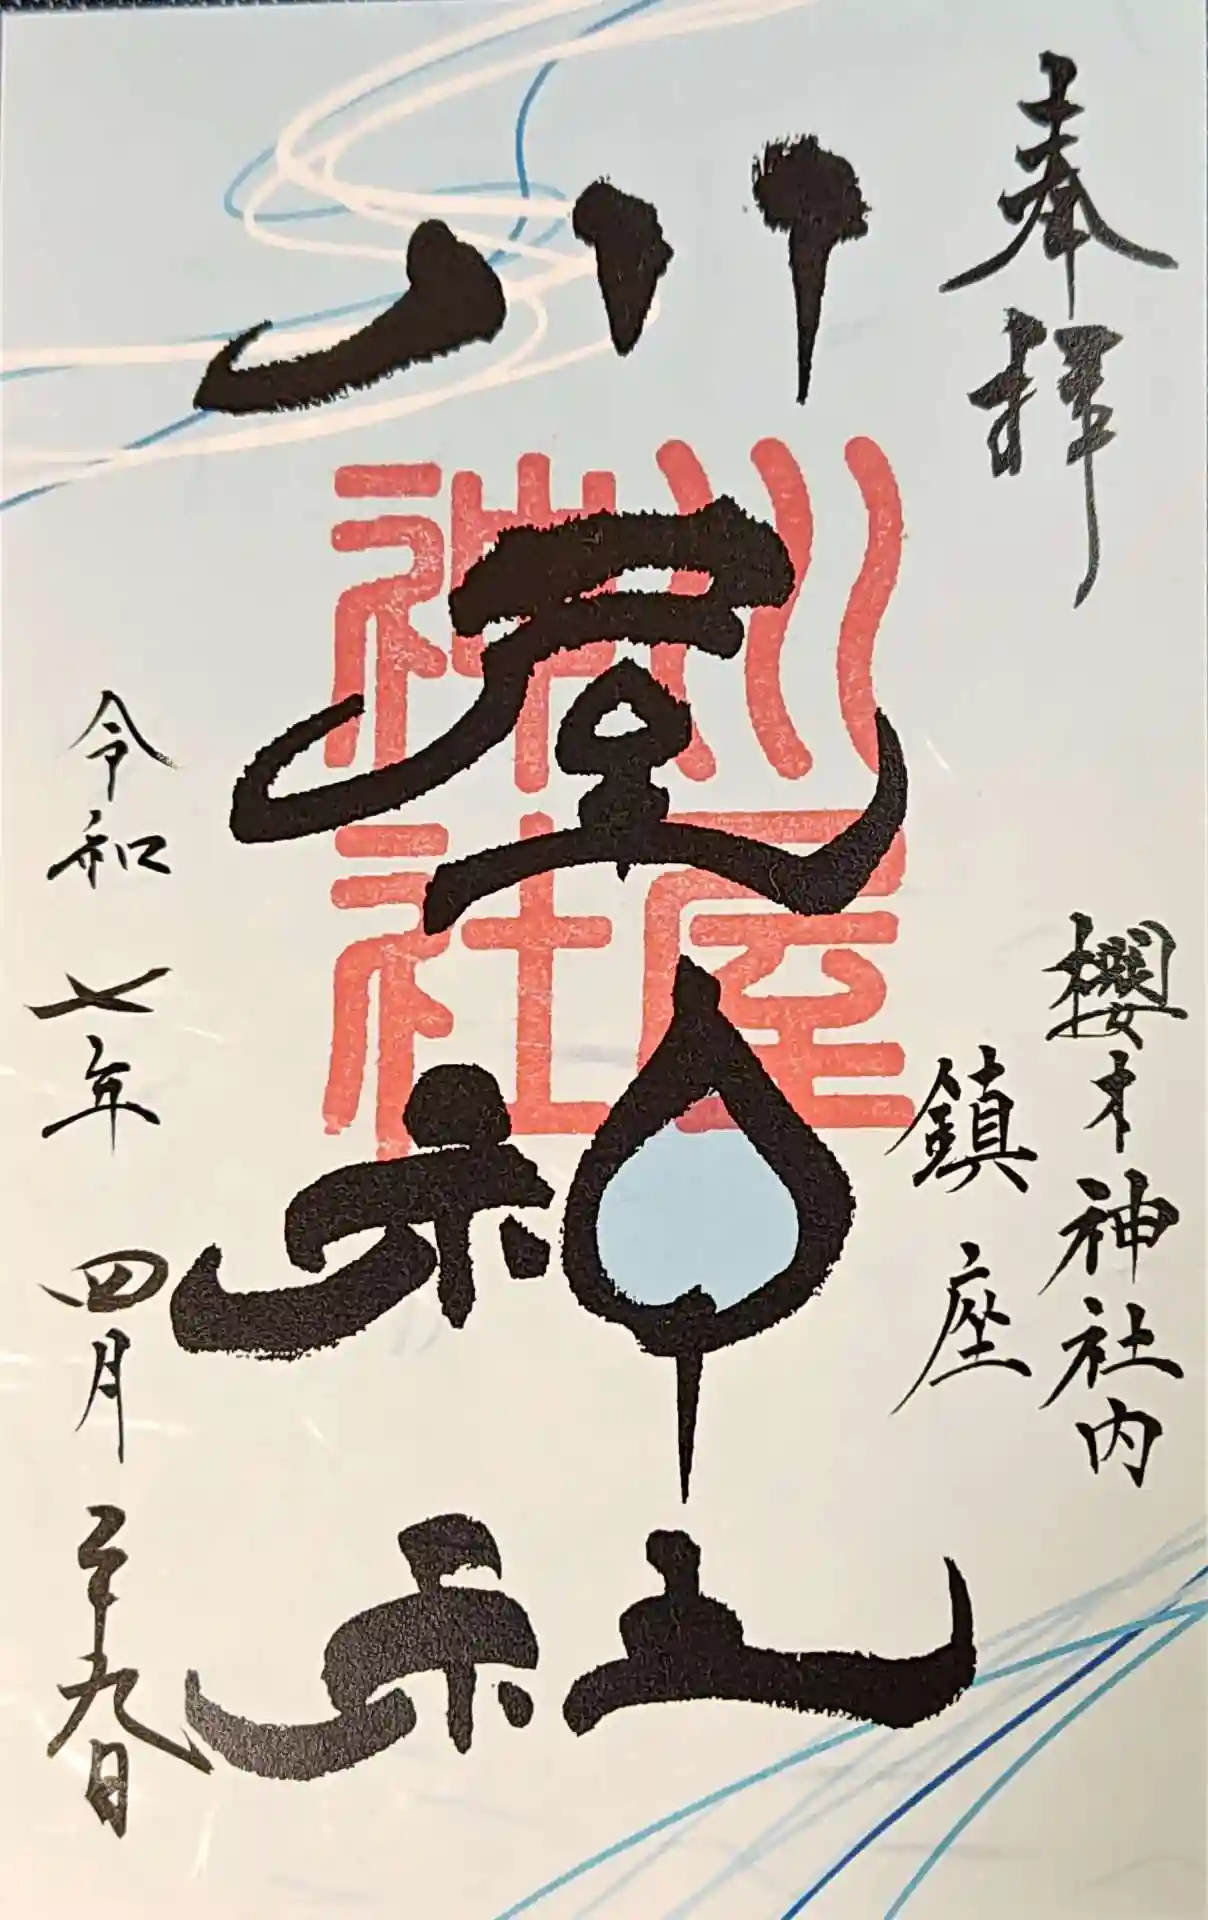 奉拝
櫻木神社内
鎮座
川屋神社
川屋神社
令和七年四月二十九日